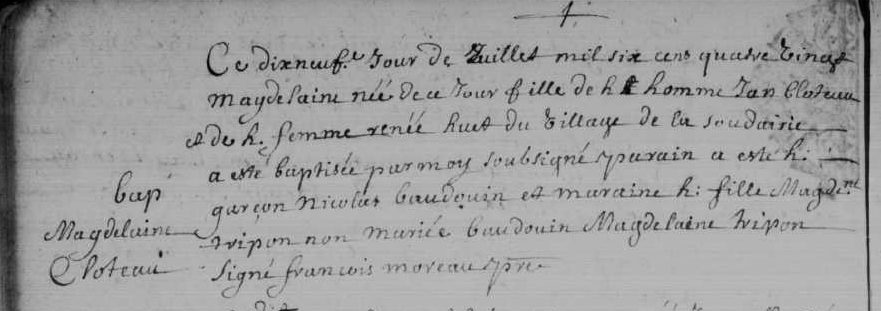 Ce dixneufe Jour de Juillet mil six cens quatre vingt
Magdelaine née de ce Jour fille de h homme Jan Cloteau
et de h. femme renée huet du village de la soudairie
a esté baptisée par moy soubsigné parain a esté h.
garçon Nicolas baudouin et maraine h: fille Magdne
tripon non mariée baudouin Magdelaine tripon
signé francois moreau pre
bap
Magdelaine
Cloteau